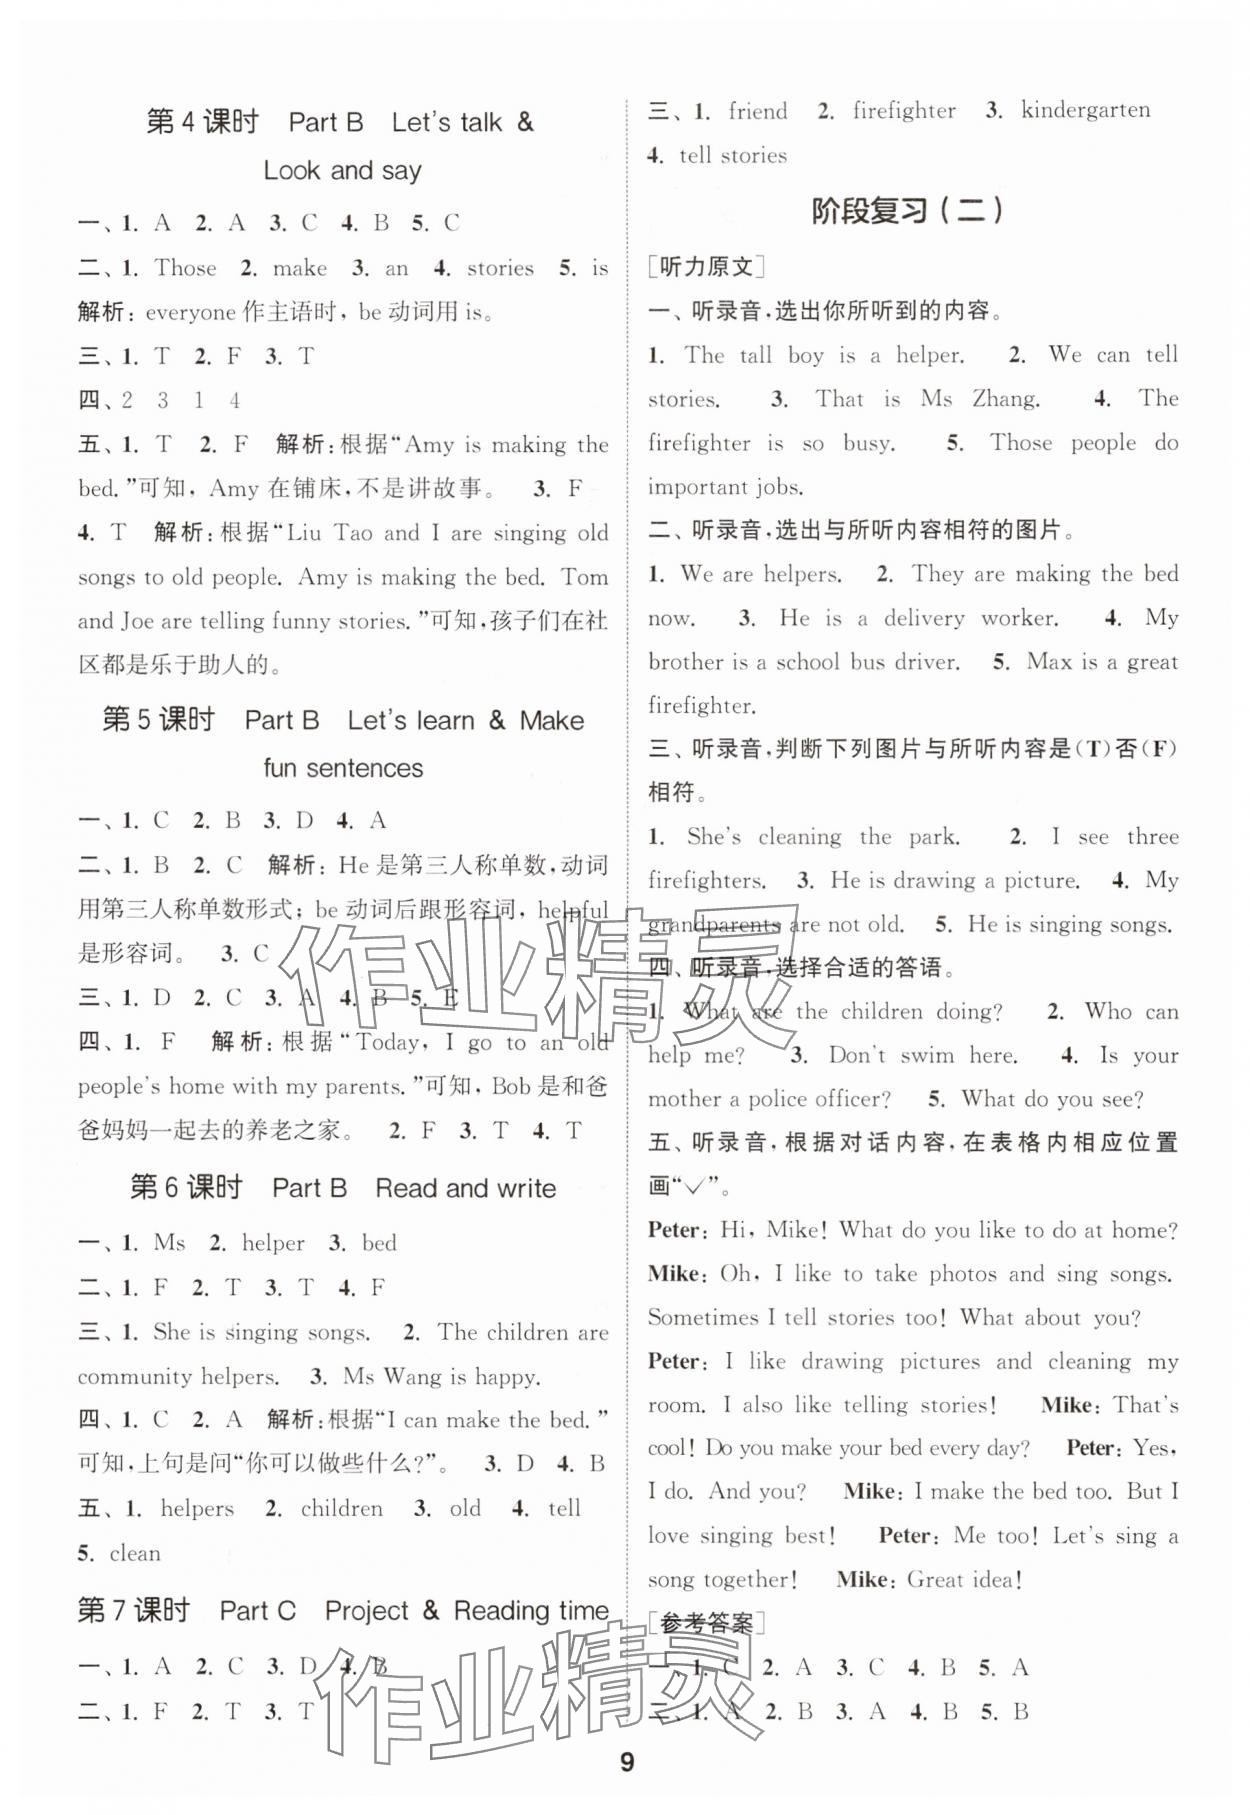 第4课时 Part B Let's talk &
Look and say
一、1. A 2. A 3. C 4. B 5. C
二、1. Those 2. make 3. an 4. stories 5. is
解析：everyone 作主语时，be 动词用 is。
三、1. T 2. F 3. T
四、2 3 1 4
五、1. T 2. F 解析：根据“Amy is making the
bed.”可知，Amy 在铺床，不是讲故事。 3. F
4. T 解析：根据“Liu Tao and I are singing old
songs to old people. Amy is making the bed. Tom
and Joe are telling funny stories.”可知，孩子们在社
区都是乐于助人的。
第5课时 Part B Let's learn & Make
fun sentences
一、1. C 2. B 3. D 4. A
二、1. B 2. C 解析：He 是第三人称单数，动词
用第三人称单数形式；be 动词后跟形容词，helpful
是形容词。 3. C
三、1. D 2. C 3. A 4. B 5. E
四、1. F 解析：根据“Today, I go to an old
people's home with my parents.”可知，Bob 是和爸
爸妈妈一起去的养老之家。 2. F 3. T 4. T
第6课时 Part B Read and write
一、1. Ms 2. helper 3. bed
二、1. F 2. T 3. T 4. F
三、1. She is singing songs. 2. The children are
community helpers. 3. Ms Wang is happy.
四、1. C 2. A 解析：根据“I can make the bed.”
可知，上句是问“你可以做些什么？”。 3. D 4. B
五、1. helpers 2. children 3. old 4. tell
5. clean
第7课时 Part C Project & Reading time
一、1. A 2. C 3. D 4. B
二、1. F 2. T 3. T
三、1. friend 2. firefighter 3. kindergarten
4. tell stories
阶段复习（二）
[听力原文]
一、听录音，选出你所听到的内容。
1. The tall boy is a helper. 2. We can tell
stories. 3. That is Ms Zhang. 4. The
firefighter is so busy. 5. Those people do
important jobs.
二、听录音，选出与所听内容相符的图片。
1. We are helpers. 2. They are making the bed
now. 3. He is a delivery worker. 4. My
brother is a school bus driver. 5. Max is a great
firefighter.
三、听录音，判断下列图片与所听内容是（T）否（F）
相符。
1. She's cleaning the park. 2. I see three
firefighters. 3. He is drawing a picture. 4. My
grandparents are not old. 5. He is singing songs.
四、听录音，选择合适的答语。
1. What are the children doing? 2. Who can
help me? 3. Don't swim here. 4. Is your
mother a police officer? 5. What do you see?
五、听录音，根据对话内容，在表格内相应位置
画“✓”。
Peter: Hi, Mike! What do you like to do at home?
Mike: Oh, I like to take photos and sing songs.
Sometimes I tell stories too! What about you?
Peter: I like drawing pictures and cleaning my
room. I also like telling stories! Mike: That's
cool! Do you make your bed every day? Peter: Yes,
I do. And you? Mike: I make the bed too. But I
love singing best! Peter: Me too! Let's sing a
song together! Mike: Great idea!
[参考答案]
一、1. C 2. A 3. C 4. B 5. A
二、1. A 2. B 3. A 4. B 5. B
作业精灵
作业精灵
9